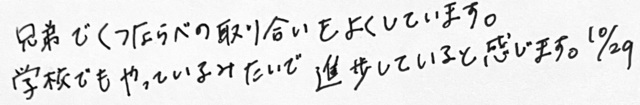 兄弟でくつならべの取り合いをよくしています。
学校でもやっているみたいで進歩していると感じます。10/29